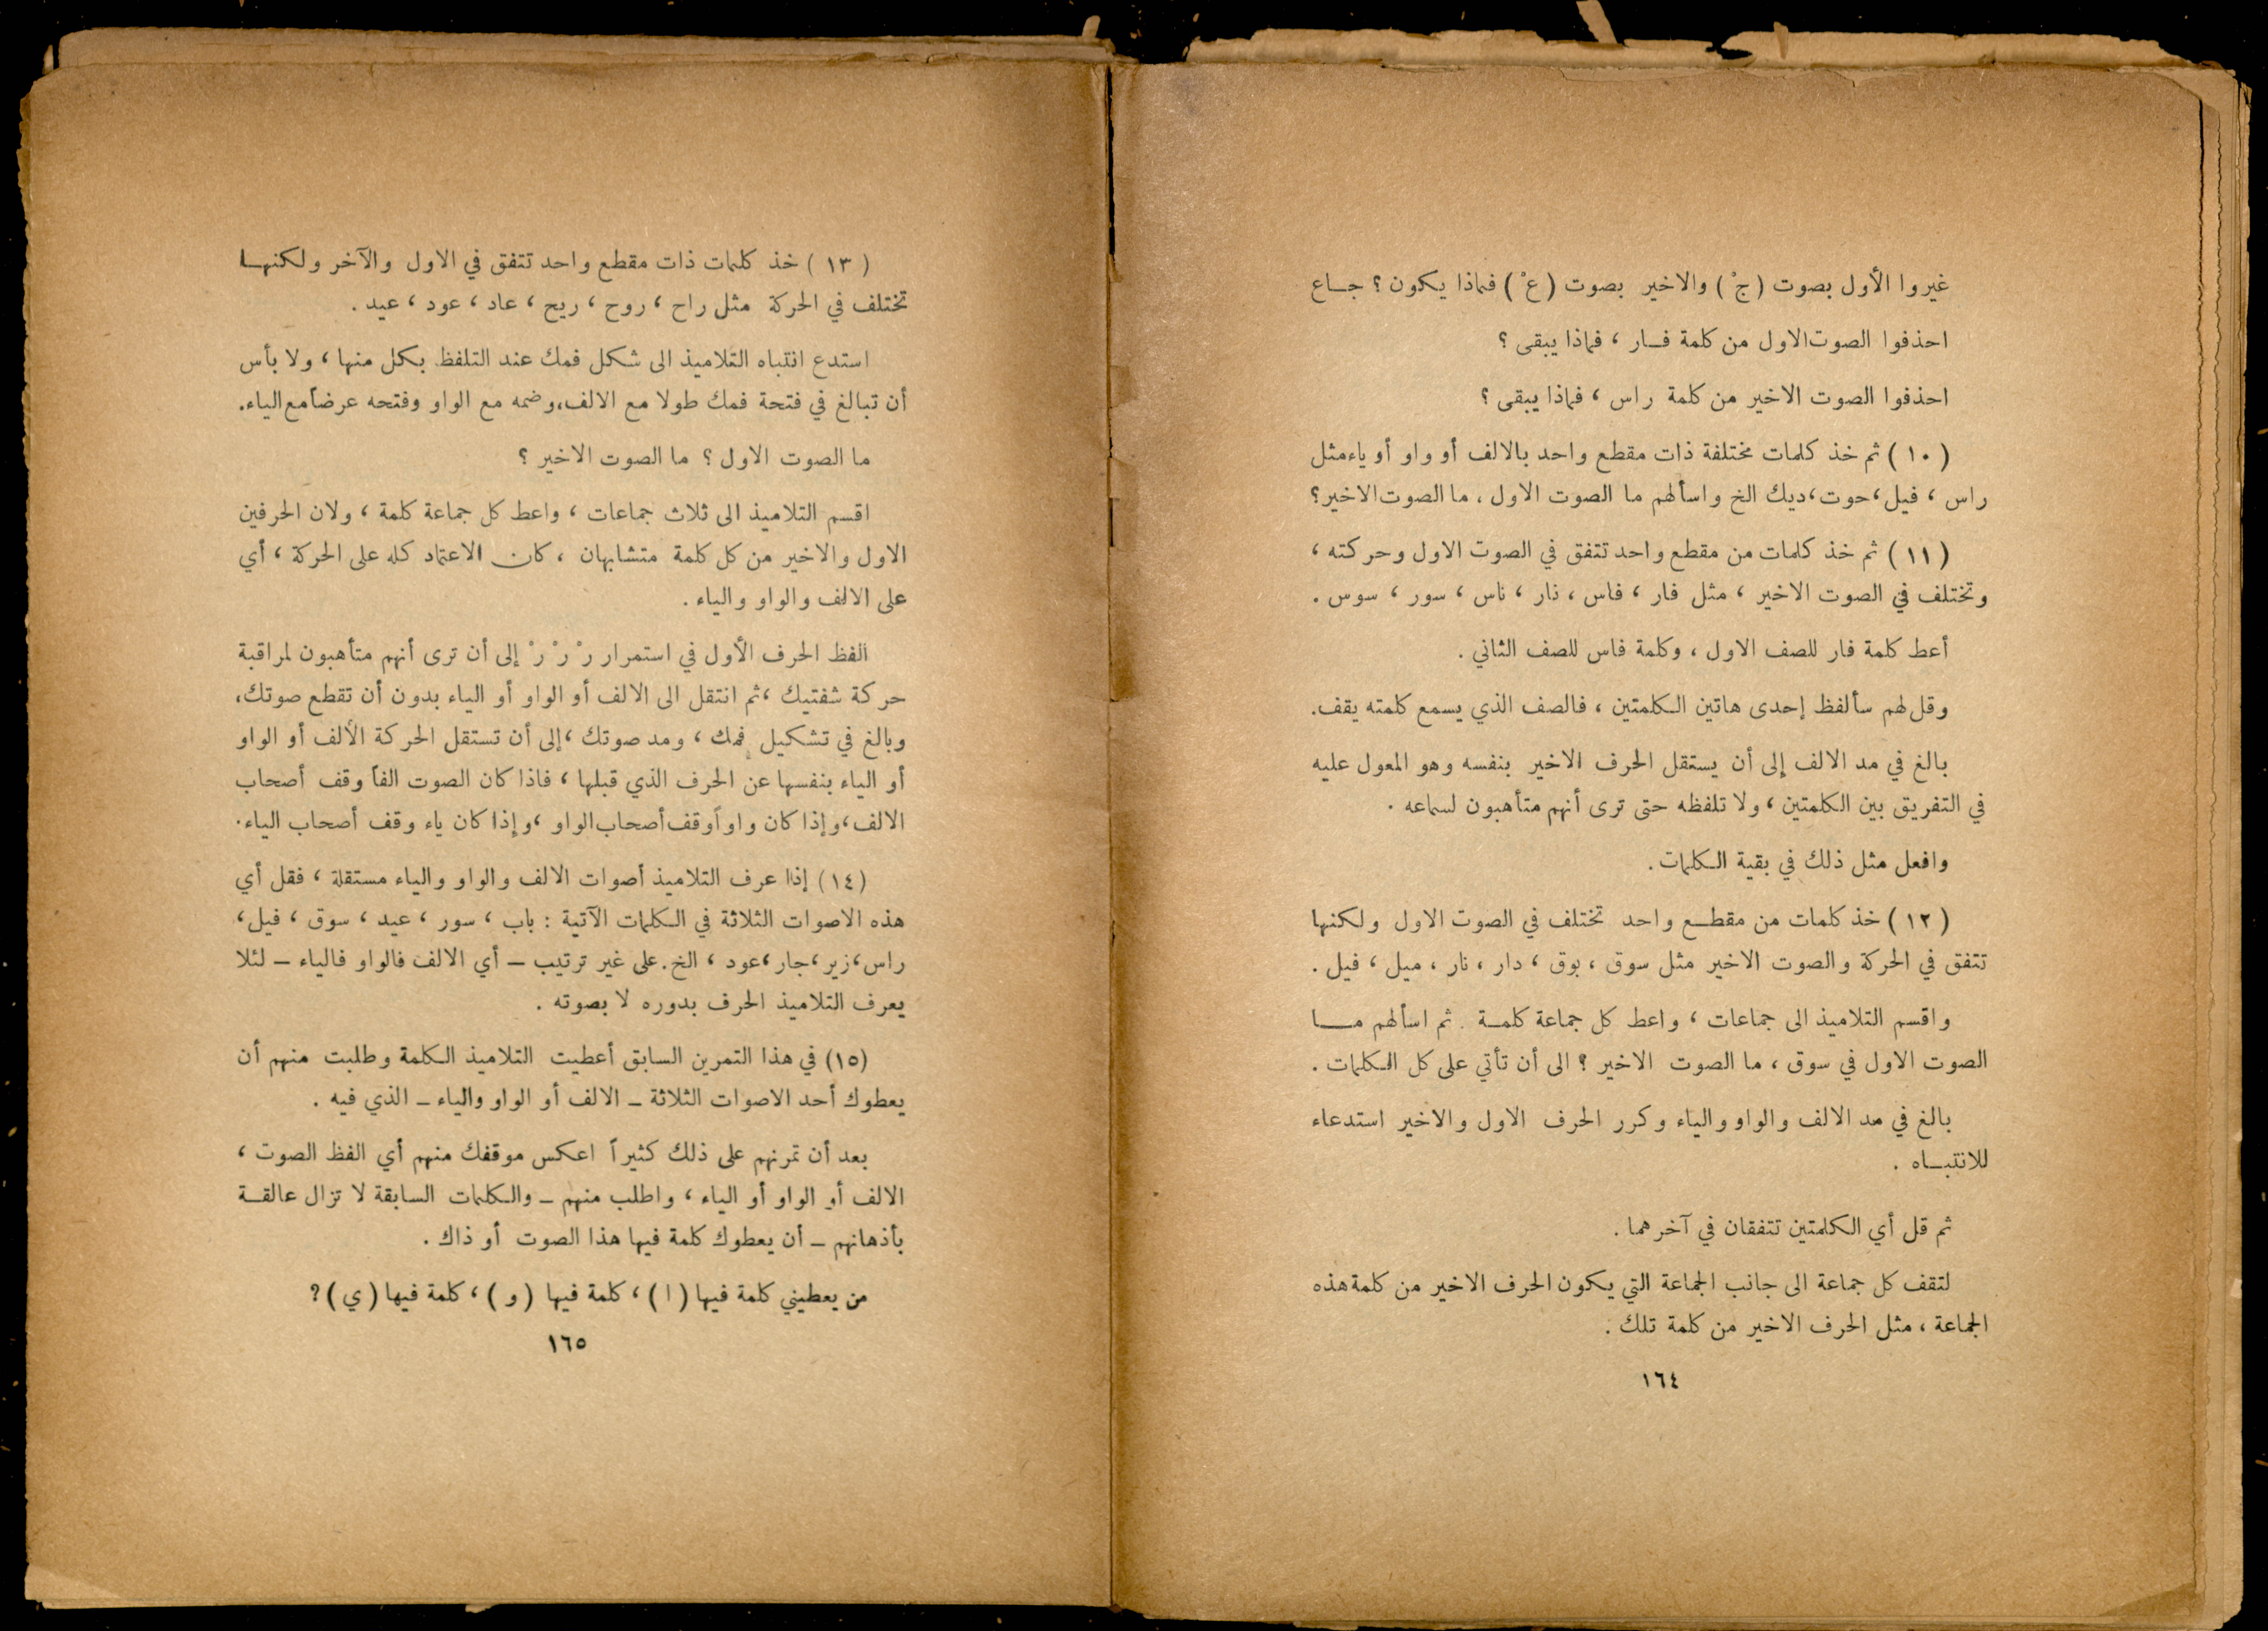 غيروا الأول بصوت (جْ) والاخير بصوت (عْ) فماذا يكون؟ جاع
احذفوا الصوت الاول من كلمة فار، فماذا يبقى؟
احذفوا الصوت الاخير من كلمة راس، فماذا يبقى؟
(١٠) ثم خذ كلمات مختلفة ذات مقطع واحد بالالف أو واو أو ياء مثل
راس، فيل، حوت، ديك الخ واسألهم ما الصوت الاول، ما الصوت الاخير؟
(١١) ثم خذ كلمات من مقطع واحد تتفق في الصوت الاول وحركته،
وتختلف في الصوت الاخير، مثل فار، فاس، نار، ناس، سور، سوس.
أعط كلمة فار للصف الاول، وكلمة فاس للصف الثاني.
وقل لهم سألفظ إحدى هاتين الكلمتين، فالصف الذي يسمع كلمته يقف.
بالغ في مد الالف إلى أن يستقل الحرف الاخير بنفسه وهو المعول عليه
في التفريق بين الكلمتين، ولا تلفظه حتى ترى أنهم متأهبون لسماعه.
وافعل مثل ذلك في بقية الكلمات.
(١٢) خذ كلمات من مقطع واحد تختلف في الصوت الاول ولكنها
تتفق في الحركة والصوت الاخير مثل سوق، بوق، دار، نار، ميل، فيل.
واقسم التلاميذ الى جماعات، واعط كل جماعة كلمة. ثم اسألهم ما
الصوت الاول في سوق، ما الصوت الاخير؟ الى أن تأتي على كل الكلمات.
بالغ في مد الالف والواو والياء وكرر الحرف الاول والاخير استدعاء
للانتباه.
ثم قل أي الكلمتين تتفقان في آخرهما.
لتقف كل جماعة الى جانب الجماعة التي يكون الحرف الاخير من كلمة هذه
الجماعة، مثل الحرف الاخير من كلمة تلك.
١٦٤
(١٣) خذ كلمات ذات مقطع واحد تتفق في الاول والآخر ولكنها
تختلف في الحركة مثل راح، روح، ريح، عاد، عود، عيد.
استدع انتباه التلاميذ الى شكل فمك عند التلفظ بكل منها، ولا بأس
أن تبالغ في فتحة فمك طولا مع الالف، وضمه مع الواو وفتحه عرضاً مع الياء.
ما الصوت الاول؟ ما الصوت الاخير؟
اقسم التلاميذ الى ثلاث جماعات، واعط كل جماعة كلمة، ولان الحرفين
الاول والاخير من كل كلمة متشابهان، كان الاعتماد كله على الحركة، أي
على الالف والواو والياء.
الفظ الحرف الأول في استمرار رْ رْ رْ إلى أن ترى أنهم متأهبون لمراقبة
حركة شفتيك، ثم انتقل الى الالف أو الواو أو الياء بدون أن تقطع صوتك،
وبالغ في تشكيل فمك، ومد صوتك، إلى أن تستقل الحركة الألف أو الواو
أو الياء بنفسها عن الحرف الذي قبلها، فاذا كان الصوت الفاً وقف أصحاب
الالف، وإذا كان واواً وقف أصحاب الواو، وإذا كان ياء وقف أصحاب الياء.
(١٤) إذا عرف التلاميذ أصوات الالف والواو والياء مستقلة، فقل أي
هذه الاصوات الثلاثة في الكلمات الآتية: باب، سور، عيد، سوق، فيل،
راس، زير، جار، عود، الخ. على غير ترتيب – أي الالف فالواو فالياء – لئلا
يعرف التلاميذ الحرف بدوره لا بصوته.
(١٥) في هذا التمرين السابق أعطيت التلاميذ الكلمة وطلبت منهم أن
يعطوك أحد الاصوات الثلاثة – الالف أو الواو والياء – الذي فيه.
بعد أن تمرنهم على ذلك كثيراً اعكس موقفك منهم أي الفظ الصوت،
الالف أو الواو أو الياء، واطلب منهم – والكلمات السابقة لا تزال عالقة
بأذهانهم – أن يعطوك كلمة فيها هذا الصوت أو ذاك.
من يعطيني كلمة فيها (ا)، كلمة فيها (و)، كلمة فيها (ي)؟
١٦٥